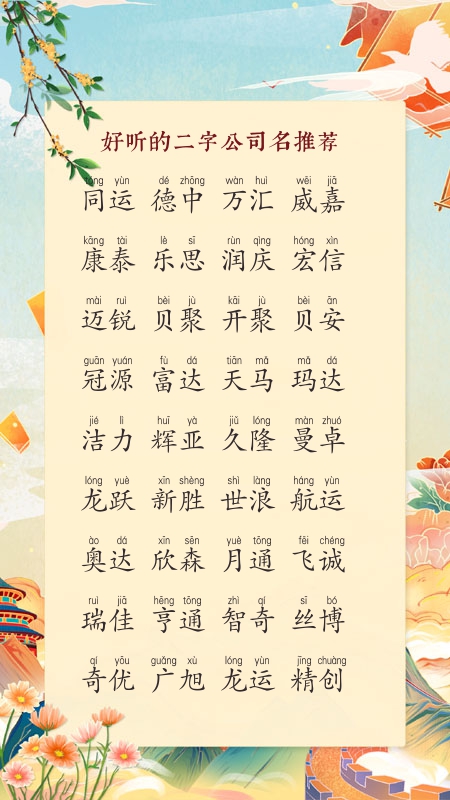 好听的二字公司名推荐
tóng yùn dé zhōng wàn huì wēi jiā
同运 德中 万汇 威嘉
kāng tài lè sī rùn qìng hóng xìn
康泰 乐思 润庆 宏信
mài ruì bèi jù kāi jù bèi ān
迈锐 贝聚 开聚 贝安
guān yuán fù dá tiān mǎ mǎ dá
冠源 富达 天马 玛达
jié lì huī yà jiǔ lóng màn zhuó
洁力 辉亚 久隆 曼卓
lóng yuè xīn shèng shì làng háng yùn
龙跃 新胜 世浪 航运
ào dá xīn sēn yuè tōng fēi chéng
奥达 欣森 月通 飞诚
ruì jiā hēng tōng zhì qí sī bó
瑞佳 亨通 智奇 丝博
qí yōu guǎng xù lóng yùn jīng chuàng
奇优 广旭 龙运 精创